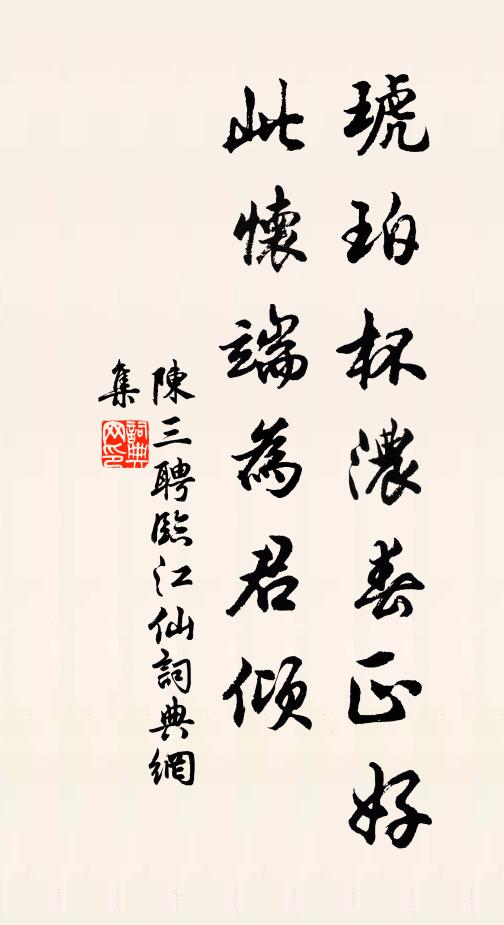 琥珀杯濃春正好
此懷端為君傾
陳三聘臨江仙詞典網
集
詞典
网印